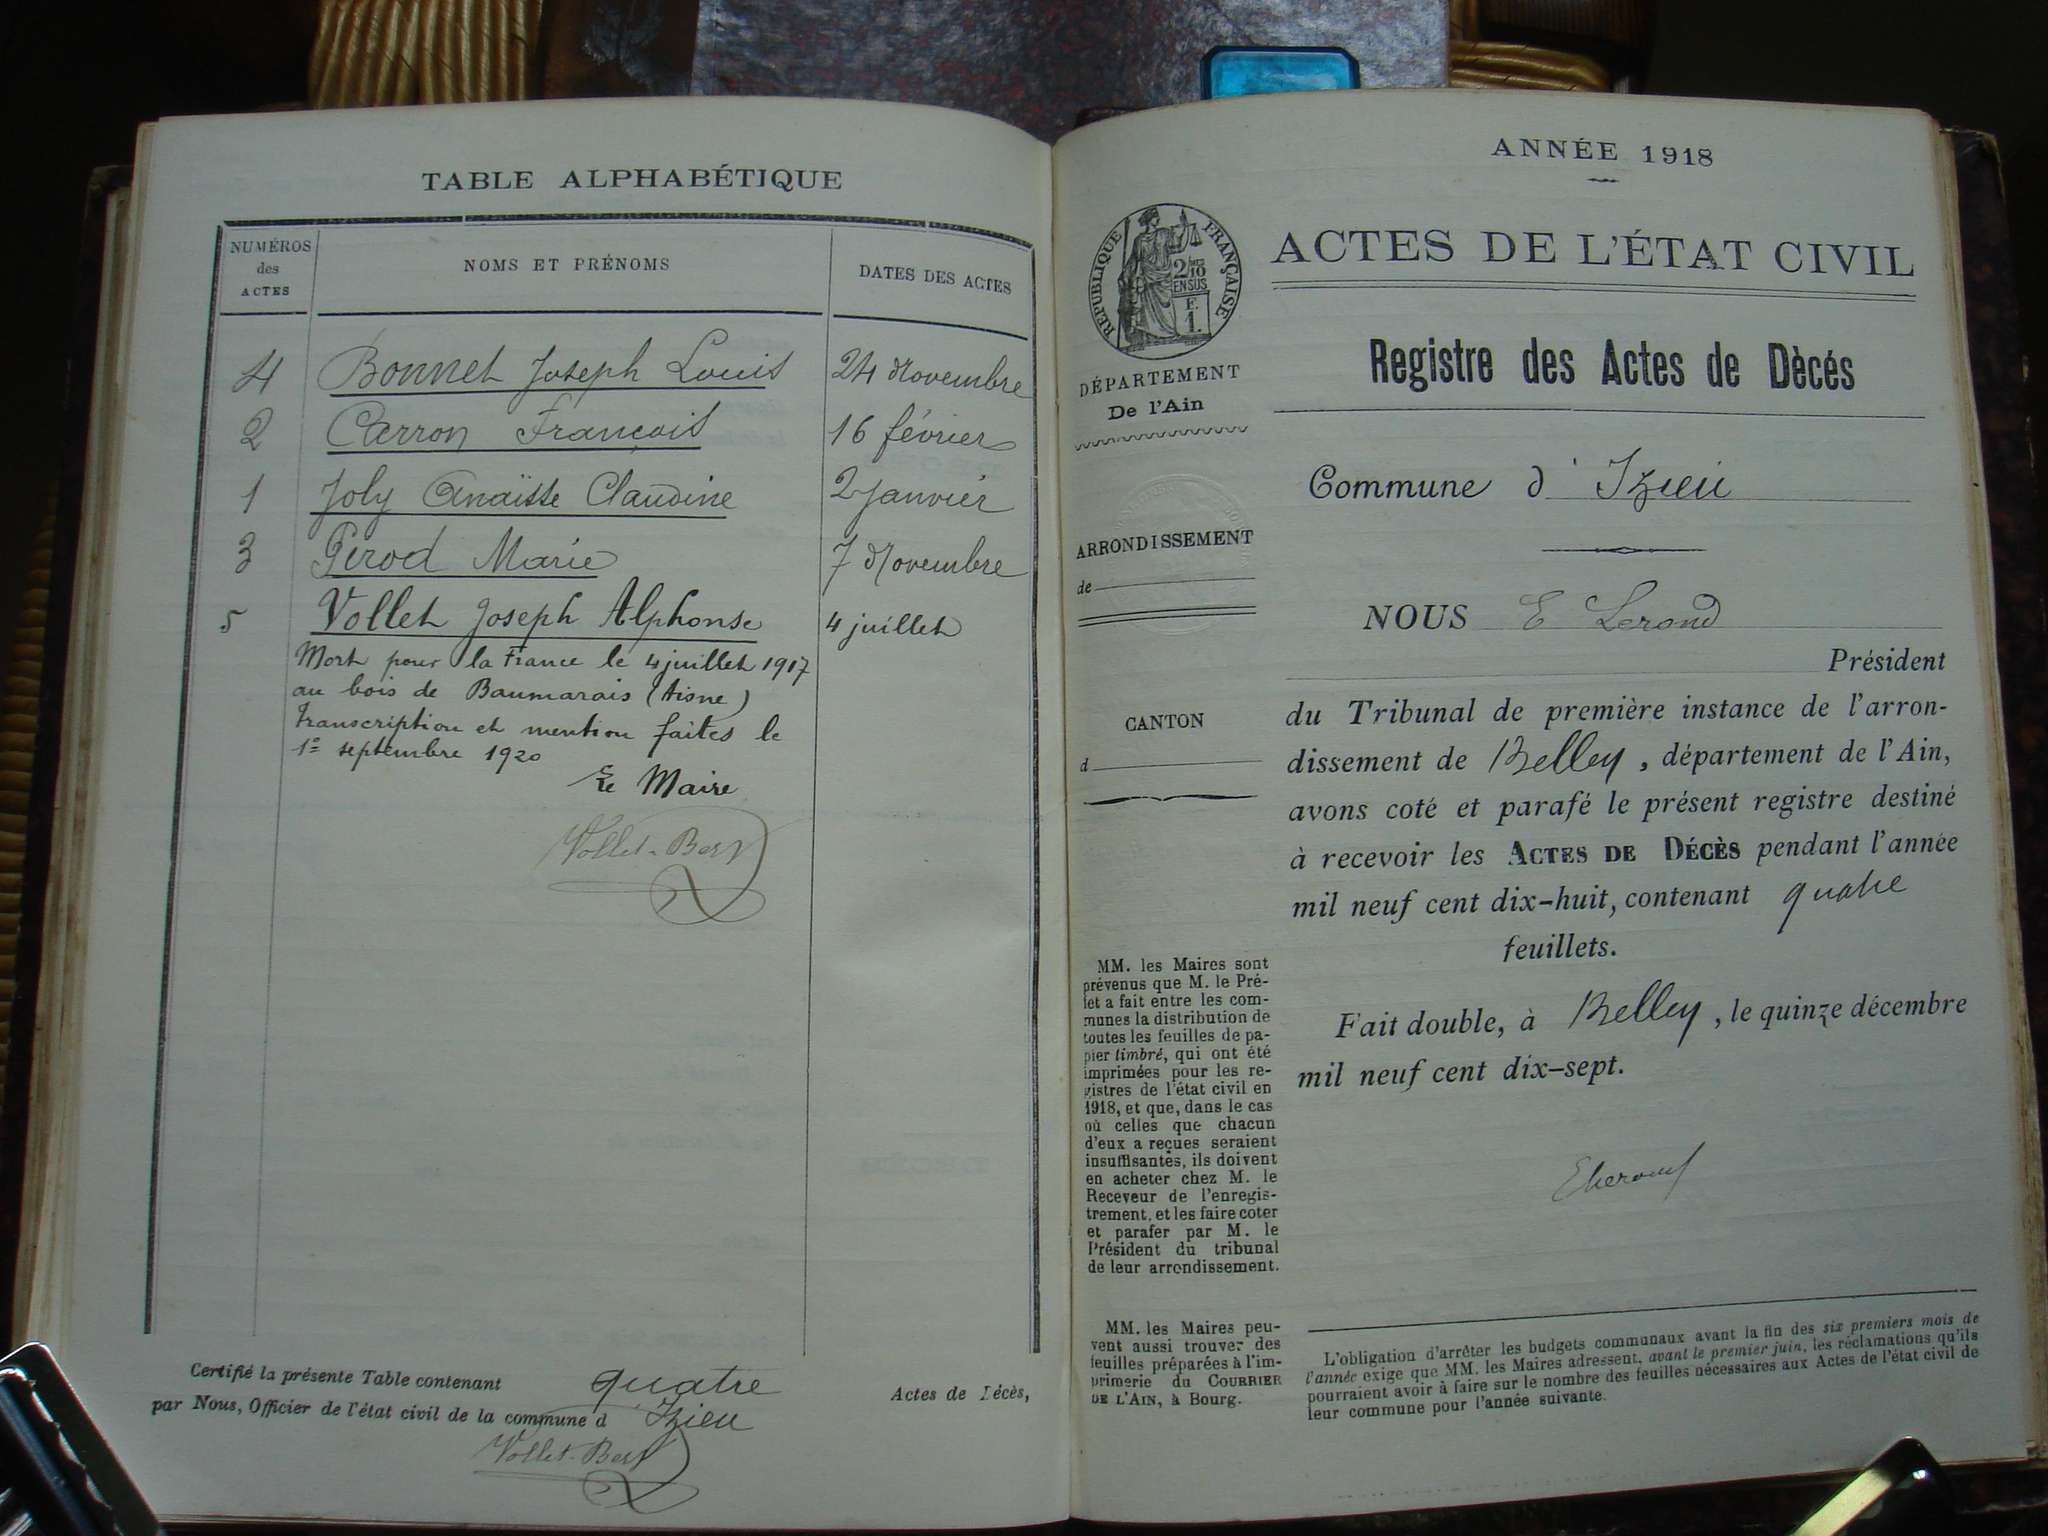 TABLE ALPHABÉTIQUE
NUMÉROS
des
ACTES
NOMS ET PRÉNOMS
DATES DES ACTES
4 Bonnet Joseph Louis 24 Novembre
2 Carron François 16 février
1 Joly Anaïsse Claudine 2 janvier
3 Perod Marie 7 Novembre
5 Vollet Joseph Alphonse 4 juillet
Mort pour la France le 4 juillet 1917
au bois de Baumarais (Aisne)
Transcription et mention faites le
1er septembre 1920
Le Maire
Vollet-Bert
Certifié la présente Table contenant quatre Actes de Décès,
par Nous, Officier de l'état civil de la commune d Izieu
Vollet-Bert
ANNÉE 1918
RÉPUBLIQUE FRANÇAISE
2/10
EN SUS
F.
1.
ACTES DE L'ÉTAT CIVIL
DÉPARTEMENT
De l'Ain
Registre des Actes de Dècés
Commune d'Izieu
ARRONDISSEMENT
de
NOUS E Lerond
Président
CANTON
d
du Tribunal de première instance de l'arron-
dissement de Belley, département de l'Ain,
avons coté et parafé le présent registre destiné
à recevoir les ACTES DE DÉCÈS pendant l'année
mil neuf cent dix-huit, contenant quatre
feuillets.
Fait double, à Belley, le quinze décembre
mil neuf cent dix-sept.
ELerond
MM. les Maires sont
prévenus que M. le Pré-
fet a fait entre les com-
munes la distribution de
toutes les feuilles de pa-
pier timbré, qui ont été
imprimées pour les re-
gistres de l'état civil en
1918, et que, dans le cas
où celles que chacun
d'eux a reçues seraient
insuffisantes, ils doivent
en acheter chez M. le
Receveur de l'enregis-
trement, et les faire coter
et parafer par M. le
Président du tribunal
de leur arrondissement.
MM. les Maires peu-
vent aussi trouver des
feuilles préparées à l'im-
primerie du COURRIER
DE L'AIN, à Bourg.
L'obligation d'arrêter les budgets communaux avant la fin des six premiers mois de
l'année exige que MM. les Maires adressent, avant le premier juin, les réclamations qu'ils
pourraient avoir à faire sur le nombre des feuilles nécessaires aux Actes de l'état civil de
leur commune pour l'année suivante.